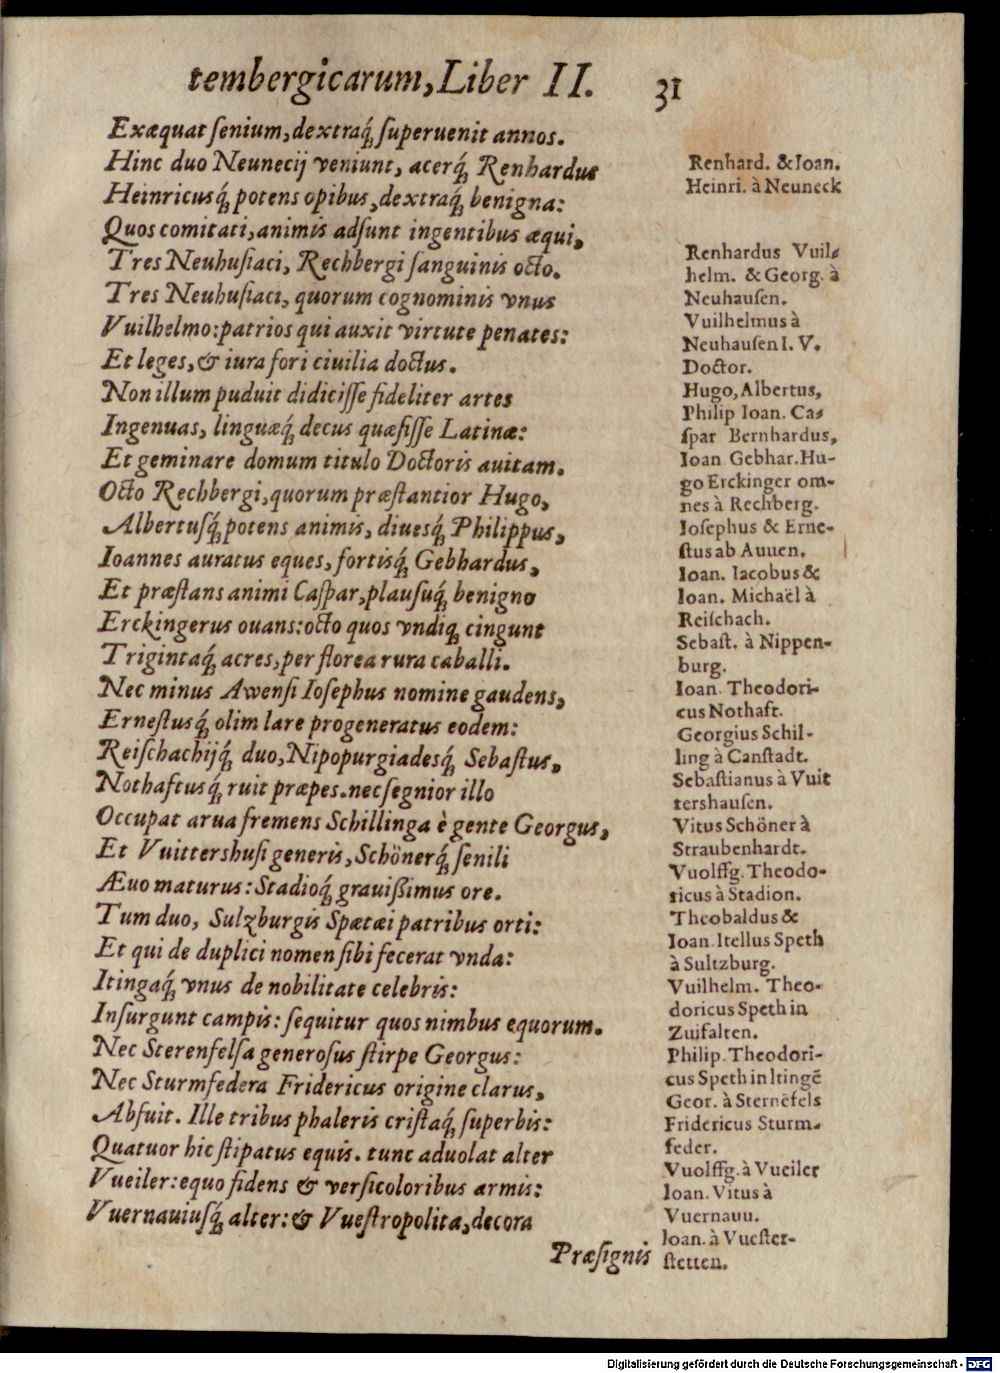 tembergicarum, Liber II. 31
Exæquat ſenium, dextraq́ȝ ſuperuenit annos.
Hinc duo Neunecij veniunt, acerq́ȝ Renhardus
Heinricusq́ȝ potens opibus, dextraq́ȝ benigna:
Quos comitati, animis adſunt ingentibus æqui,
Tres Neuhuſiaci, Rechbergi ſanguinis octo.
Tres Neuhuſiaci, quorum cognominis vnus
Vuilhelmo: patrios qui auxit virtute penates:
Et leges, & iura fori ciuilia doctus.
Non illum puduit didiciſſe fideliter artes
Ingenuas, linguæq́ȝ decus quæſiſſe Latinæ:
Et geminare domum titulo Doctoris auitam.
Octo Rechbergi, quorum præſtantior Hugo,
Albertuſq́ȝ potens animis, diuesq́ȝ Philippus,
Ioannes auratus eques, fortiſq́ȝ Gebhardus,
Et præſtans animi Caſpar, plauſuq́ȝ benigno
Erckingerus ouans: octo quos vndiqȝ cingunt
Trigintaq́ȝ acres, per florea rura caballi.
Nec minus Awenſi Ioſephus nomine gaudens,
Erneſtusq́ȝ olim lare progeneratus eodem:
Reiſchachijq́ȝ duo, Nipopurgiadesq́ȝ Sebaſtus,
Nothaftusq́ȝ ruit præpes. nec ſegnior illo
Occupat arua fremens Schillinga è gente Georgus,
Et Vuittershuſi generis, Schönerq́ȝ ſenili
Æuo maturus: Stadioq́ȝ grauiſsimus ore.
Tum duo, Sulzburgis Spætæi patribus orti:
Et qui de duplici nomen ſibi fecerat vnda:
Itingaq́ȝ vnus de nobilitate celebris:
Inſurgunt campis: ſequitur quos nimbus equorum.
Nec Sterenfelſa generoſus ſtirpe Georgus:
Nec Sturmfedera Fridericus origine clarus,
Abfuit. Ille tribus phaleris criſtaq́ȝ ſuperbis:
Quatuor hic ſtipatus equis. tunc aduolat alter
Vueiler: equo fidens & verſicoloribus armis:
Vuernauiuſq́ȝ alter: & Vueſtropolita, decora
Præſignis
Renhard. & Ioan.
Heinri. à Neuneck
Renhardus Vuil⸗
helm. & Georg. à
Neuhauſen.
Vuilhelmus à
Neuhauſen I. V.
Doctor.
Hugo, Albertus,
Philip Ioan. Ca⸗
ſpar Bernhardus,
Ioan Gebhar. Hu-
go Erckinger om-
nes à Rechberg.
Ioſephus & Erne-
ſtus ab Auuen.
Ioan. Iacobus &
Ioan. Michaël à
Reiſchach.
Sebaſt. à Nippen-
burg.
Ioan. Theodori-
cus Nothaft.
Georgius Schil-
ling à Canſtadt.
Sebaſtianus à Vuit
tershauſen.
Vitus Schöner à
Straubenhardt.
Vuolffg. Theodo-
ricus à Stadion.
Theobaldus &
Ioan. Itellus Speth
à Sultzburg.
Vuilhelm. Theo-
doricus Speth in
Zuifalten.
Philip. Theodori-
cus Speth in Itingē
Geor. à Sternēfels
Fridericus Sturm-
feder.
Vuolffg. à Vueiler
Ioan. Vitus à
Vuernauu.
Ioan. à Vueſter-
ſtetten.
Digitalisierung gefördert durch die Deutsche Forschungsgemeinschaft - DFG